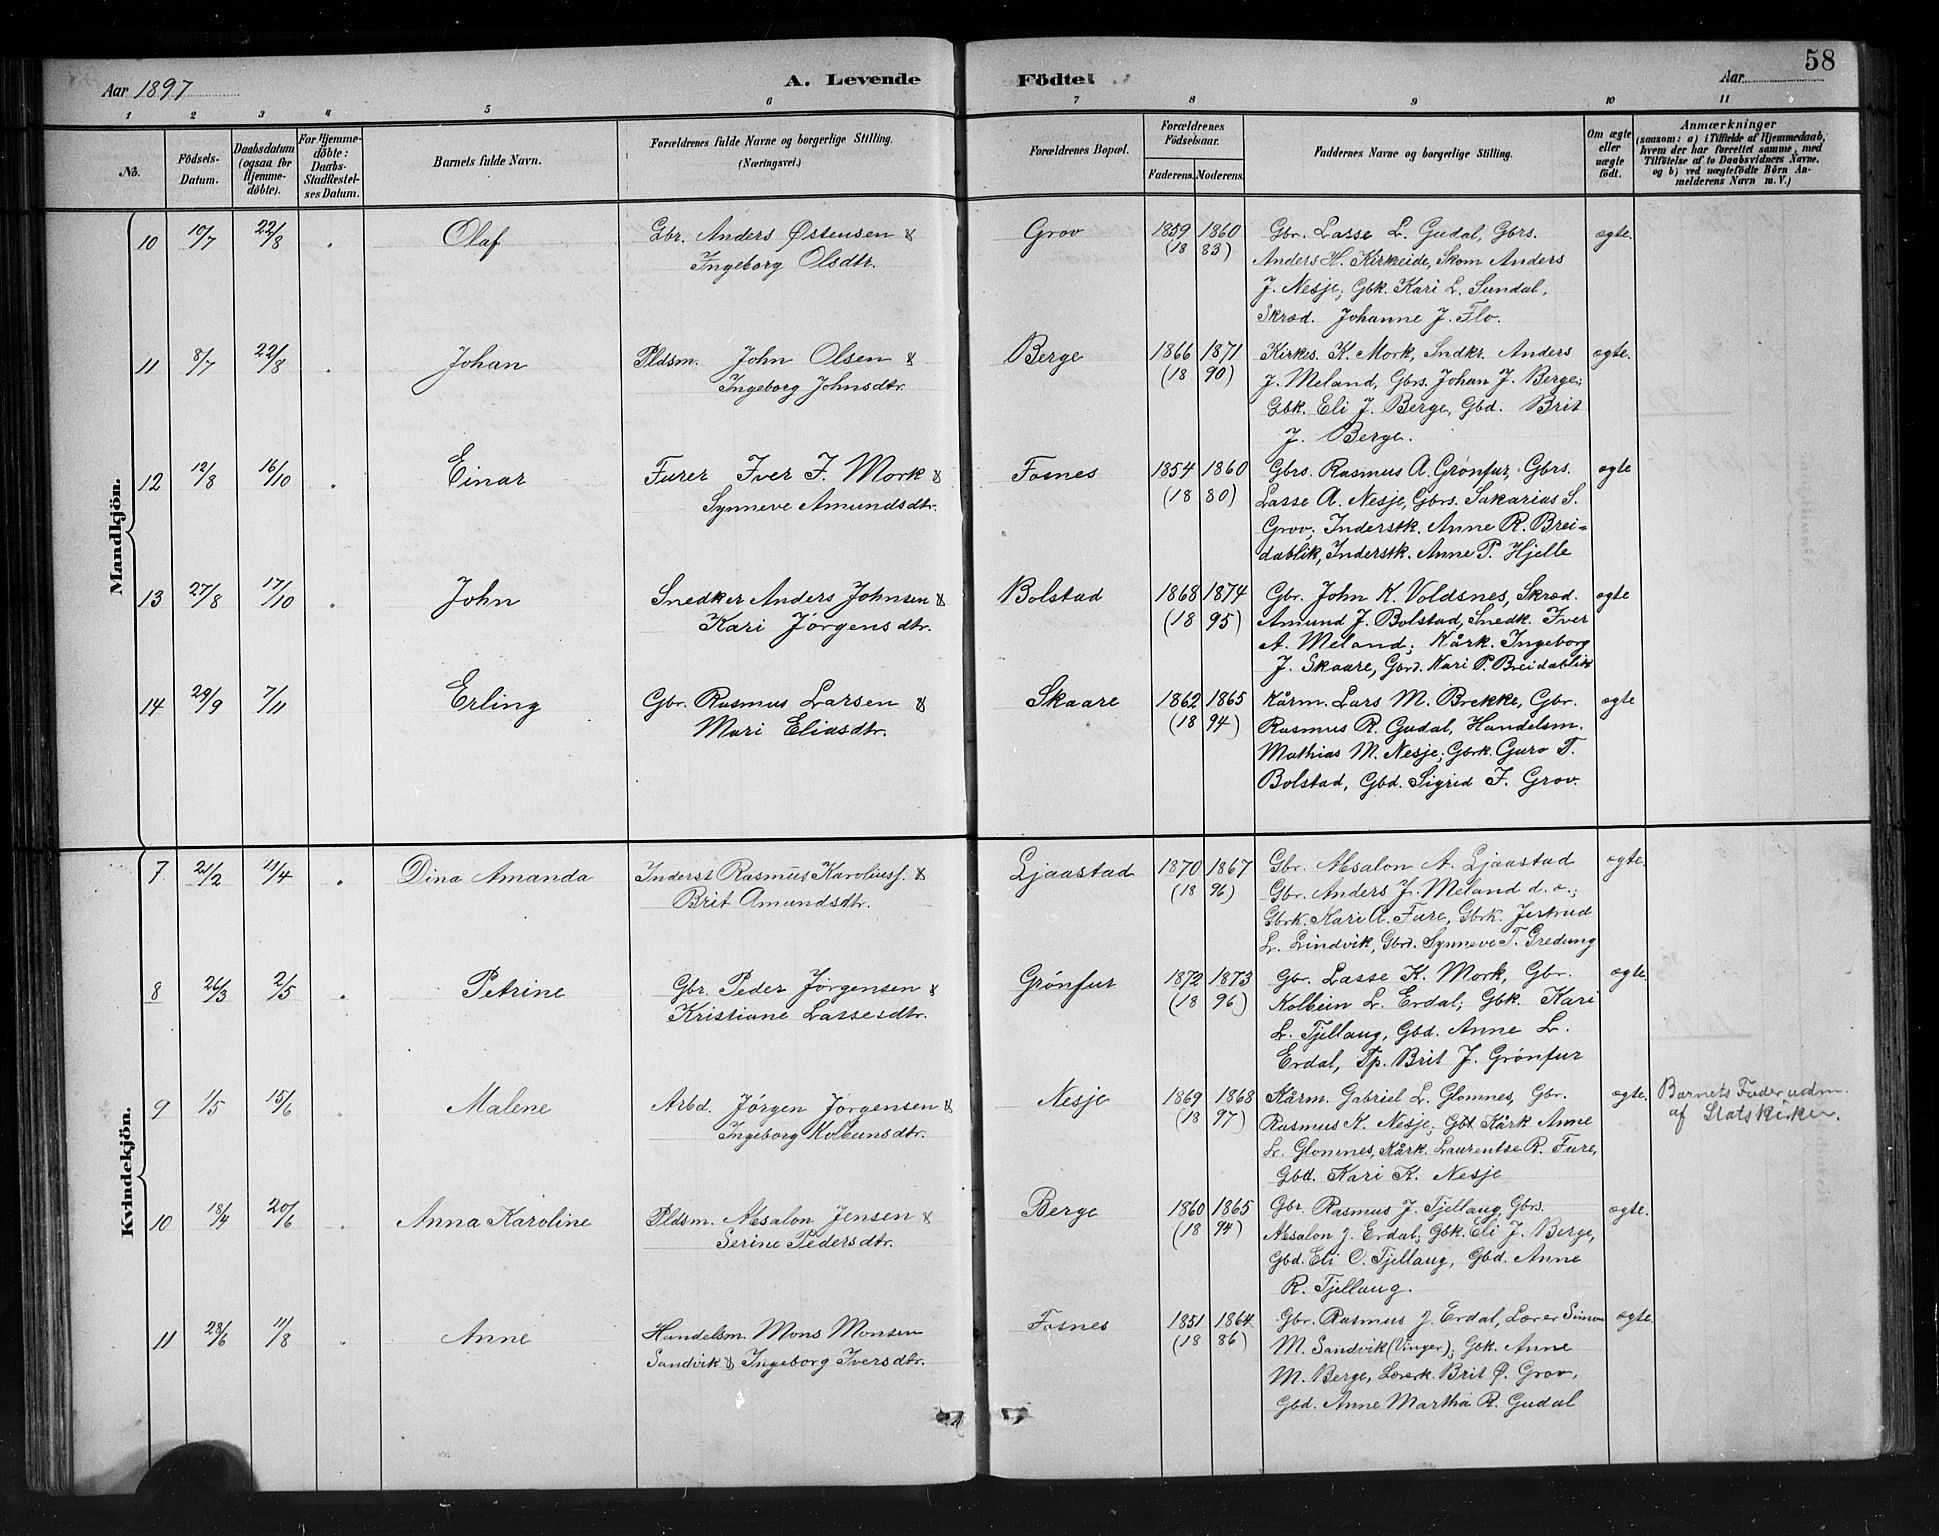 58
Aar 1897
A. Levende
Födte.
Aar
1 2 3 4 5 6 7 8 9 10 11
No.
Födsels-Datum.
Daabsdatum (ogsaa for Hjemme-döbte).
For Hjemme-döbte: Daabs-Stadfæstelses Datum.
Barnets fulde Navn.
Forældrenes fulde Navne og borgerlige Stilling. (Næringsvei.)
Forældrenes Bopæl.
Forældrenes Födselsaar.
Faderens. Moderens.
Faddernes Navne og borgerlige Stilling.
Om ægte eller uægte födt.
Anmærkninger
(saasom: a) i Tilfælde af Hjemmedaab, hvem der har forrettet samme, med Tilföielse af to Daabsvidners Navne. og b) ved uægtefödte Börn Anmelderens Navn m.V.)
Mandkjön.
10 10/7 22/8 " Olaf Gbr. Anders Østensen & Grov 1859 1860 Gbr. Lasse L. Gudal, Gbrs. ægte.
Ingeborg Olsdtr. (18 83) Anders H. Kirkeide, Skom Anders
J. Nesje; Gbk. Kari L. Sundal,
Skræd. Johanne J. Flo.
11 8/7 22/8 " Johan Pldsm. John Olsen & Berge 1866 1871 Kirkes. K. Mork, Sndkr. Anders ægte.
Ingeborg Johnsdtr. (18 90) J. Meland, Gbrs. Johan J. Berge;
Gbk. Eli J. Berge, Gbd. Brit
J. Berge.
12 12/8 16/10 " Einar Furer Iver I. Mork & Fosnes 1854 1860 Gbrs. Rasmus A. Grønfur, Gbrs. ægte
Synneve Amundsdtr. (18 80) Lasse A. Nesje, Gbrs. Sakarias S.
Grov; Inderstk. Anne R. Brei=
dablik, Inderstk. Anne P. Hjelle
13 27/8 17/10 " John Snedker Anders Johnsen & Bolstad 1868 1874 Gbr. John K. Voldsnes, Skræd. ægte
Kari Jørgensdtr. (18 95) Amund J. Bolstad, Snedk. Iver
A. Meland; Kårk. Ingeborg
J. Skaare, Gbrd. Kari P. Breidablik
14 29/9 7/11 Erling Gbr. Rasmus Larsen & Skaare 1862 1865 Kårm. Lars M. Brekke, Gbr. ægte
Mari Eliasdtr. (18 94) Rasmus R. Gudal, Handelsm.
Mathias M. Nesje; Gbrk. Guro T.
Bolstad, Gbd. Sigrid I. Grov.
Kvindekjön.
7 21/2 11/4 " Dina Amanda Inderst Rasmus Karoliusf. & Ljaastad 1870 1867 Gbr. Absalon A. Ljaastad ægte.
Brit Amundsdtr. (18 96) Gbr. Anders J. Meland d. o.;
Gbrk. Kari A. Fure, Gbrk. Jertrud
L. Lindvik, Gbrd. Synneve T. Gredung
8 26/3 2/5 " Petrine Gbr. Peder Jørgensen & Grønfur 1872 1873 Gbr. Lasse K. Mork, Gbr. ægte.
Kristiane Lassesdtr. (18 96) Kolbein L. Erdal; Gbk. Kari
L. Tjellaug, Gbd. Anne L.
Erdal, Tp. Brit J. Grønfur
9 1/5 15/6 " Malene Arbd. Jørgen Jørgensen & Nesje 1869 1868 Kårm. Gabriel L. Glomnes, Gbr. ægte. Barnets Fader udm.
Ingeborg Kolbeinsdtr. (18 97) Rasmus K. Nesje; Gbk Kårk Anne af Statskirken.
L. Glomnes, Kårk. Laurentse R. Fure,
Gbd. Kari K. Nesje
10 18/4 20/6 " Anna Karoline Pldsm. Absalon Jensen & Berge 1860 1865 Gbr. Rasmus J. Tjellaug, Gbrs. ægte.
Serine Pedersdtr. (18 94) Absalon J. Erdal; Gbk. Eli J. Berge,
Gbd. Eli O. Tjellaug, Gbd. Anne
R. Tjellaug.
11 28/6 11/8 " Anne Handelsm. Mons Monsen Fosnes 1851 1864 Gbr. Rasmus J. Erdal, Lærer Simon ægte.
Sandvik & Ingeborg Iversdtr. (18 86) M. Sandvik (Vinger); Gbk. Anne
M. Berge, Lærerk. Brit Ø. Grov,
Gbd. Anne Martha R. Gudal